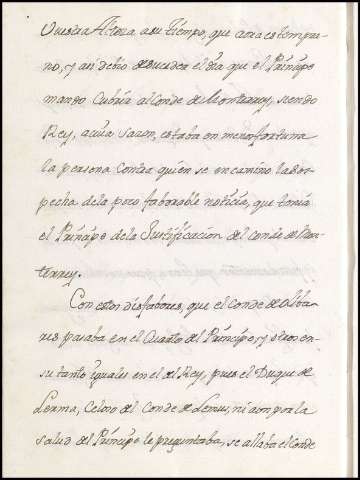 Vuestra Alteza a su tiempo, que aora es tempra-
no, y asi debio de suceder el dia que el Principe
mando Cubrir al Conde de Monterrey, siendo
Rey, a cuia sazon, estaba en menos fortuna
la persona contra quien se encamino la sos-
pecha de la poco faborable noticia, que tenia
el Principe de la Justificacion del conde de Mon-
terrey.
Con estos disfabores, que el Conde de Oliba-
res pasaba en el Quarto del Principe, y otros en
su tanto iguales en el del Rey, pues el Duque de
Lerma, Celoso del Conde de Lemus, ni aun por la
salud del Principe le preguntaba, se allaba el Conde